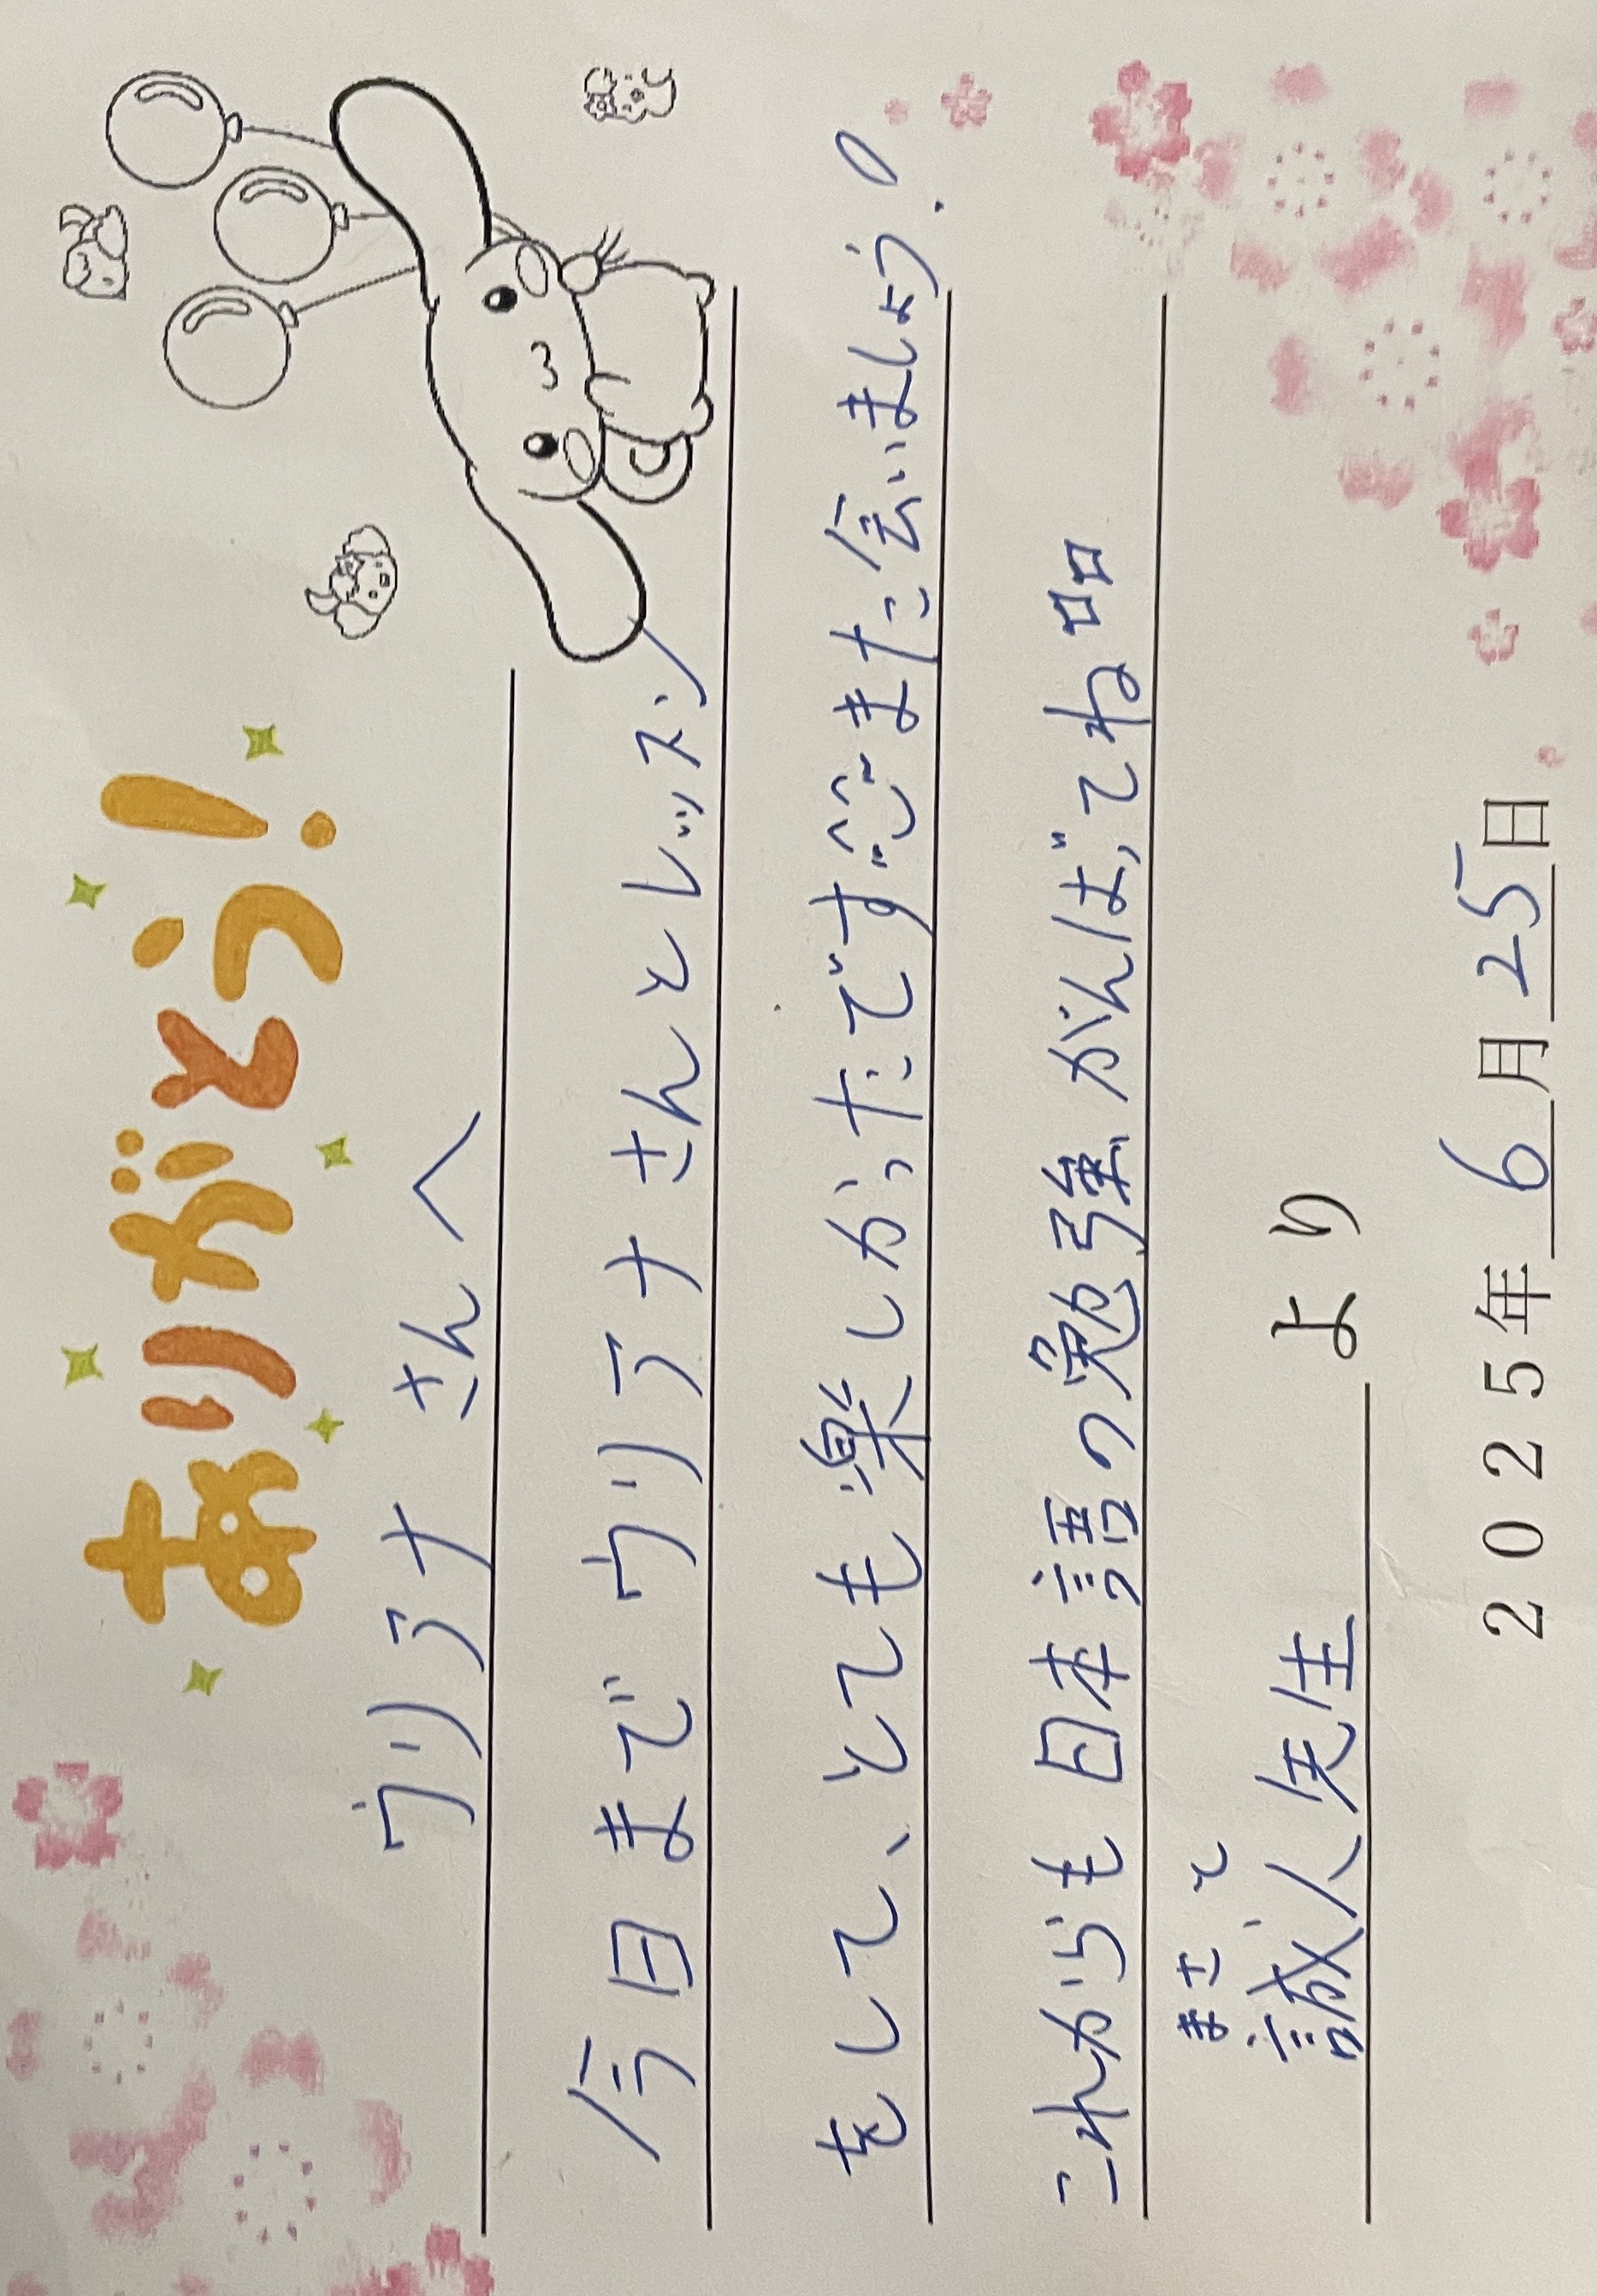 ありがとう!
ウリラナ さんへ
今日まで ウリラナ さんとレッスン
をして、とても楽しかったです また会いましょう!
これからも日本語の勉強がんばってね
まさと
誠人先生 より
2025年6月25日